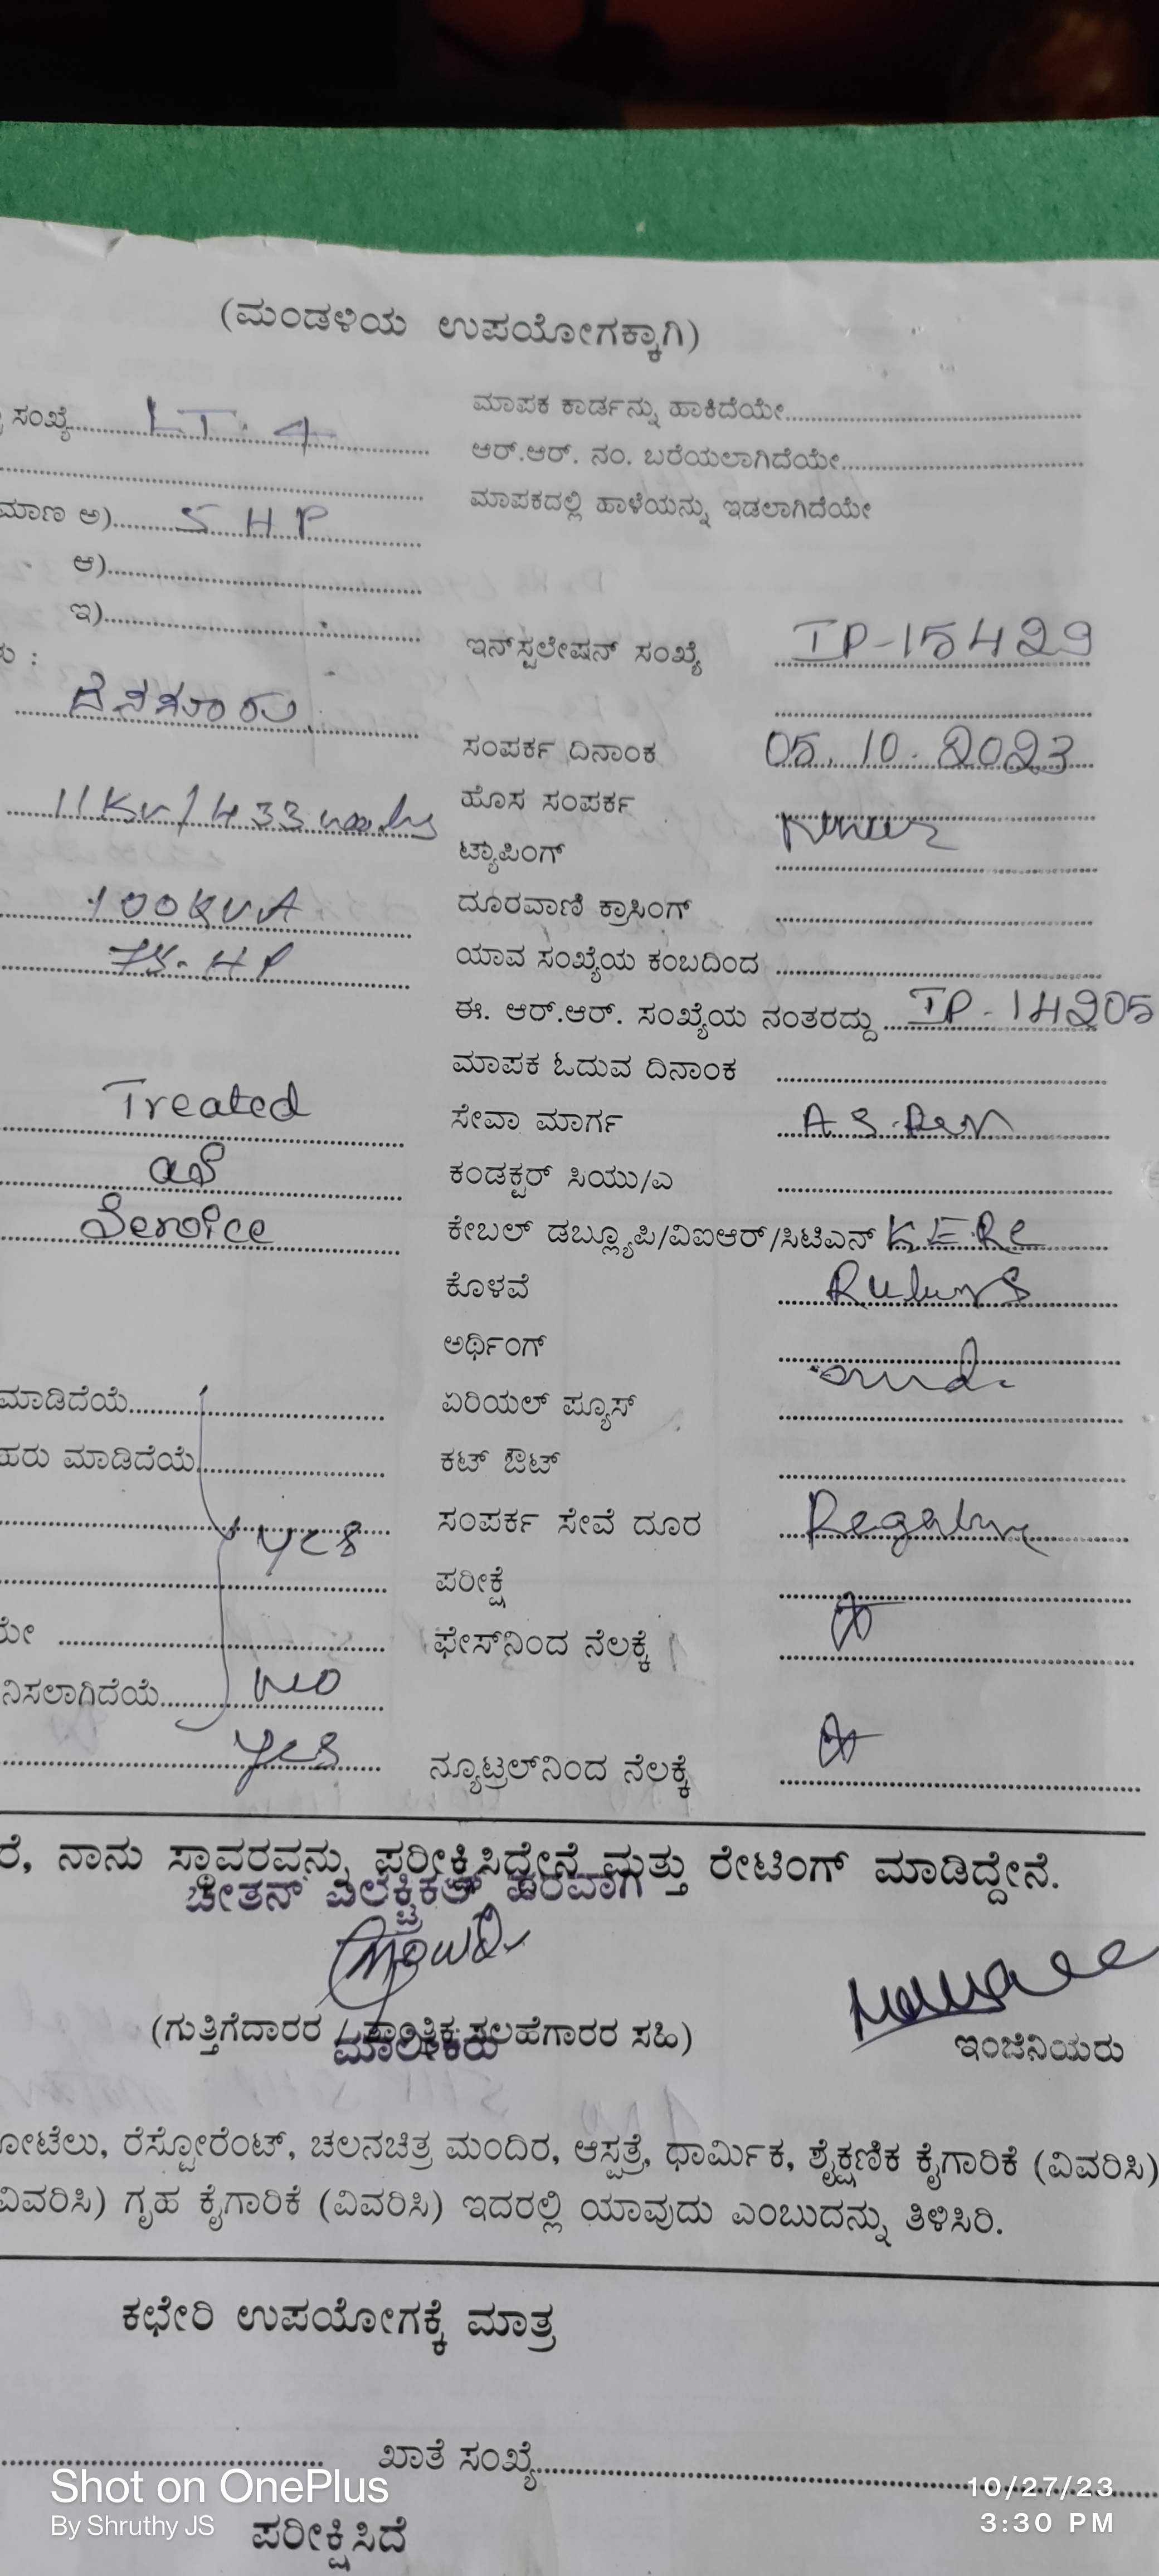 (ಮಂಡಳಿಯ ಉಪಯೋಗಕ್ಕಾಗಿ)
ಸಂಖ್ಯೆ LT-4
ಮಾಣ ಅ) 5 HP
ಆ)
ಇ)
ು :
11KV/433
100KVA
75-HP
Treated
as
Service
ಮಾಡಿದೆಯೆ
ಹರು ಮಾಡಿದೆಯೆ
Yes
ಯೇ
ನಿಸಲಾಗಿದೆಯೆ NO
Yes
ಮಾಪಕ ಕಾರ್ಡನ್ನು ಹಾಕಿದೆಯೇ
ಆರ್.ಆರ್. ನಂ. ಬರೆಯಲಾಗಿದೆಯೇ
ಮಾಪಕದಲ್ಲಿ ಹಾಳೆಯನ್ನು ಇಡಲಾಗಿದೆಯೇ
ಇನ್‌ಸ್ಟಲೇಷನ್ ಸಂಖ್ಯೆ IP-15429
ಸಂಪರ್ಕ ದಿನಾಂಕ 05.10.2023
ಹೊಸ ಸಂಪರ್ಕ
ಟ್ಯಾಪಿಂಗ್
ದೂರವಾಣಿ ಕ್ರಾಸಿಂಗ್
ಯಾವ ಸಂಖ್ಯೆಯ ಕಂಬದಿಂದ
ಈ. ಆರ್.ಆರ್. ಸಂಖ್ಯೆಯ ನಂತರದ್ದು IP-14205
ಮಾಪಕ ಓದುವ ದಿನಾಂಕ
ಸೇವಾ ಮಾರ್ಗ AS Per
ಕಂಡಕ್ಟರ್ ಸಿಯು/ಎ
ಕೇಬಲ್ ಡಬ್ಲ್ಯೂಪಿ/ವಿಐಆರ್/ಸಿಟಿಎನ್ KERC
ಕೊಳವೆ
ಅರ್ಥಿಂಗ್
ಏರಿಯಲ್ ಪ್ಯೂಸ್
ಕಟ್ ಔಟ್
ಸಂಪರ್ಕ ಸೇವೆ ದೂರ
ಪರೀಕ್ಷೆ
ಫೇಸ್‌ನಿಂದ ನೆಲಕ್ಕೆ
ನ್ಯೂಟ್ರಲ್‌ನಿಂದ ನೆಲಕ್ಕೆ
ರೆ, ನಾನು ಸ್ಥಾವರವನ್ನು ಪರೀಕ್ಷಿಸಿದ್ದೇನೆ ಮತ್ತು ರೇಟಿಂಗ್ ಮಾಡಿದ್ದೇನೆ.
ಚೇತನ್ ಎಲೆಕ್ಟ್ರಿಕಲ್ ಪರವಾಗಿ
(ಗುತ್ತಿಗೆದಾರರ / ತಾಂತ್ರಿಕ ಸಲಹೆಗಾರರ ಸಹಿ)
ಮಾಲೀಕರು
ಇಂಜಿನಿಯರು
ೋಟೆಲು, ರೆಸ್ಟೋರೆಂಟ್, ಚಲನಚಿತ್ರ ಮಂದಿರ, ಆಸ್ಪತ್ರೆ, ಧಾರ್ಮಿಕ, ಶೈಕ್ಷಣಿಕ ಕೈಗಾರಿಕೆ (ವಿವರಿಸಿ)
ವಿವರಿಸಿ) ಗೃಹ ಕೈಗಾರಿಕೆ (ವಿವರಿಸಿ) ಇದರಲ್ಲಿ ಯಾವುದು ಎಂಬುದನ್ನು ತಿಳಿಸಿರಿ.
ಕಛೇರಿ ಉಪಯೋಗಕ್ಕೆ ಮಾತ್ರ
ಖಾತೆ ಸಂಖ್ಯೆ
ಪರೀಕ್ಷಿಸಿದೆ
Shot on OnePlus
By Shruthy JS
10/27/23
3:30 PM